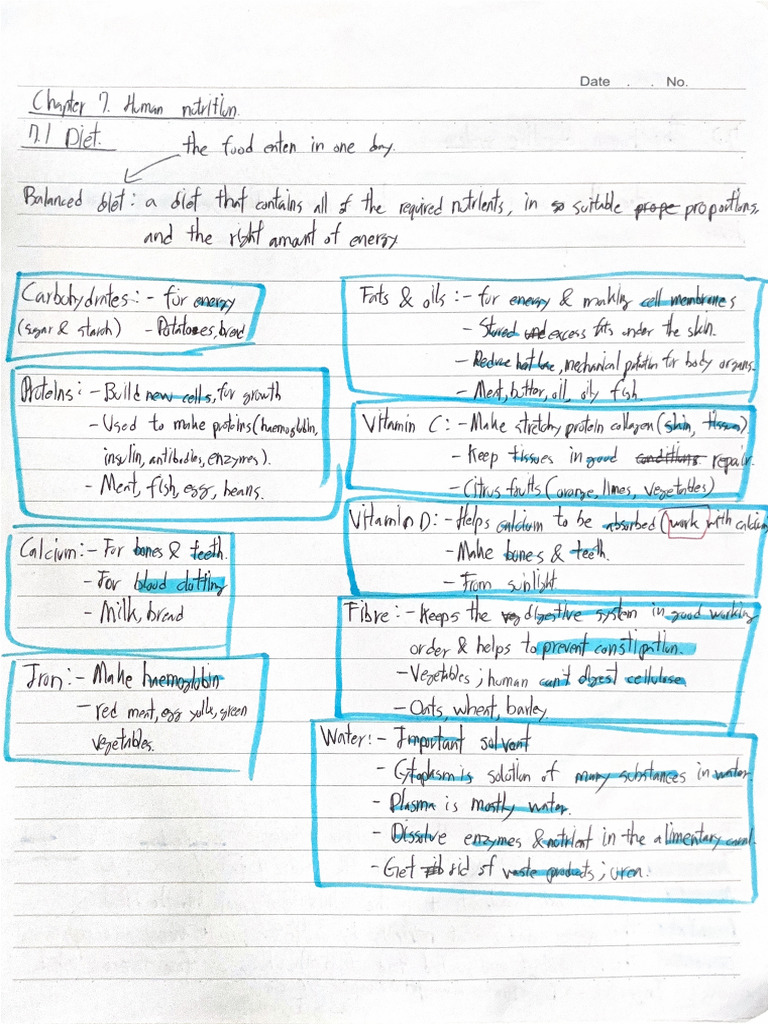 Date . . No.
Chapter 7. Human nutrition.
7.1 Diet.
the food eaten in one day.
Balanced diet: a diet that contains all of the required nutrients, in so suitable prope proportions,
and the right amount of energy.
Carbohydrates: - for energy
(sugar & starch) - Potatoes, bread
Proteins: - Build new cells, for growth
- Used to make proteins (haemoglobin,
insulin, antibodies, enzymes).
- Meat, fish, egg, beans.
Calcium: - For bones & teeth.
- For blood clotting
- Milk, bread
Iron: - Make haemoglobin
- red meat, egg yolk, green
vegetables.
Fats & oils: - for energy & making cell membranes
- Stored excess fats under the skin.
- Reduce heat , mechanical for body organs.
- Meat, butter, oil, oily fish.
Vitamin C: - Make stretchy protein collagen (skin, tissue)
- Keep tissues in good conditions repair.
- Citrus fruits (orange, limes, vegetables)
Vitamin D: - Helps calcium to be absorbed (work with calcium
- Make bones & teeth.
- From sunlight
Fibre: - Keeps the digestive system in good working
order & helps to prevent constipation.
- Vegetables; human can't digest cellulose
- Oats, wheat, barley.
Water: - Important solvent
- Cytoplasm is solution of many substances in water.
- Plasma is mostly water.
- Dissolve enzymes & nutrient in the alimentary canal.
- Get rid of waste products; uren.